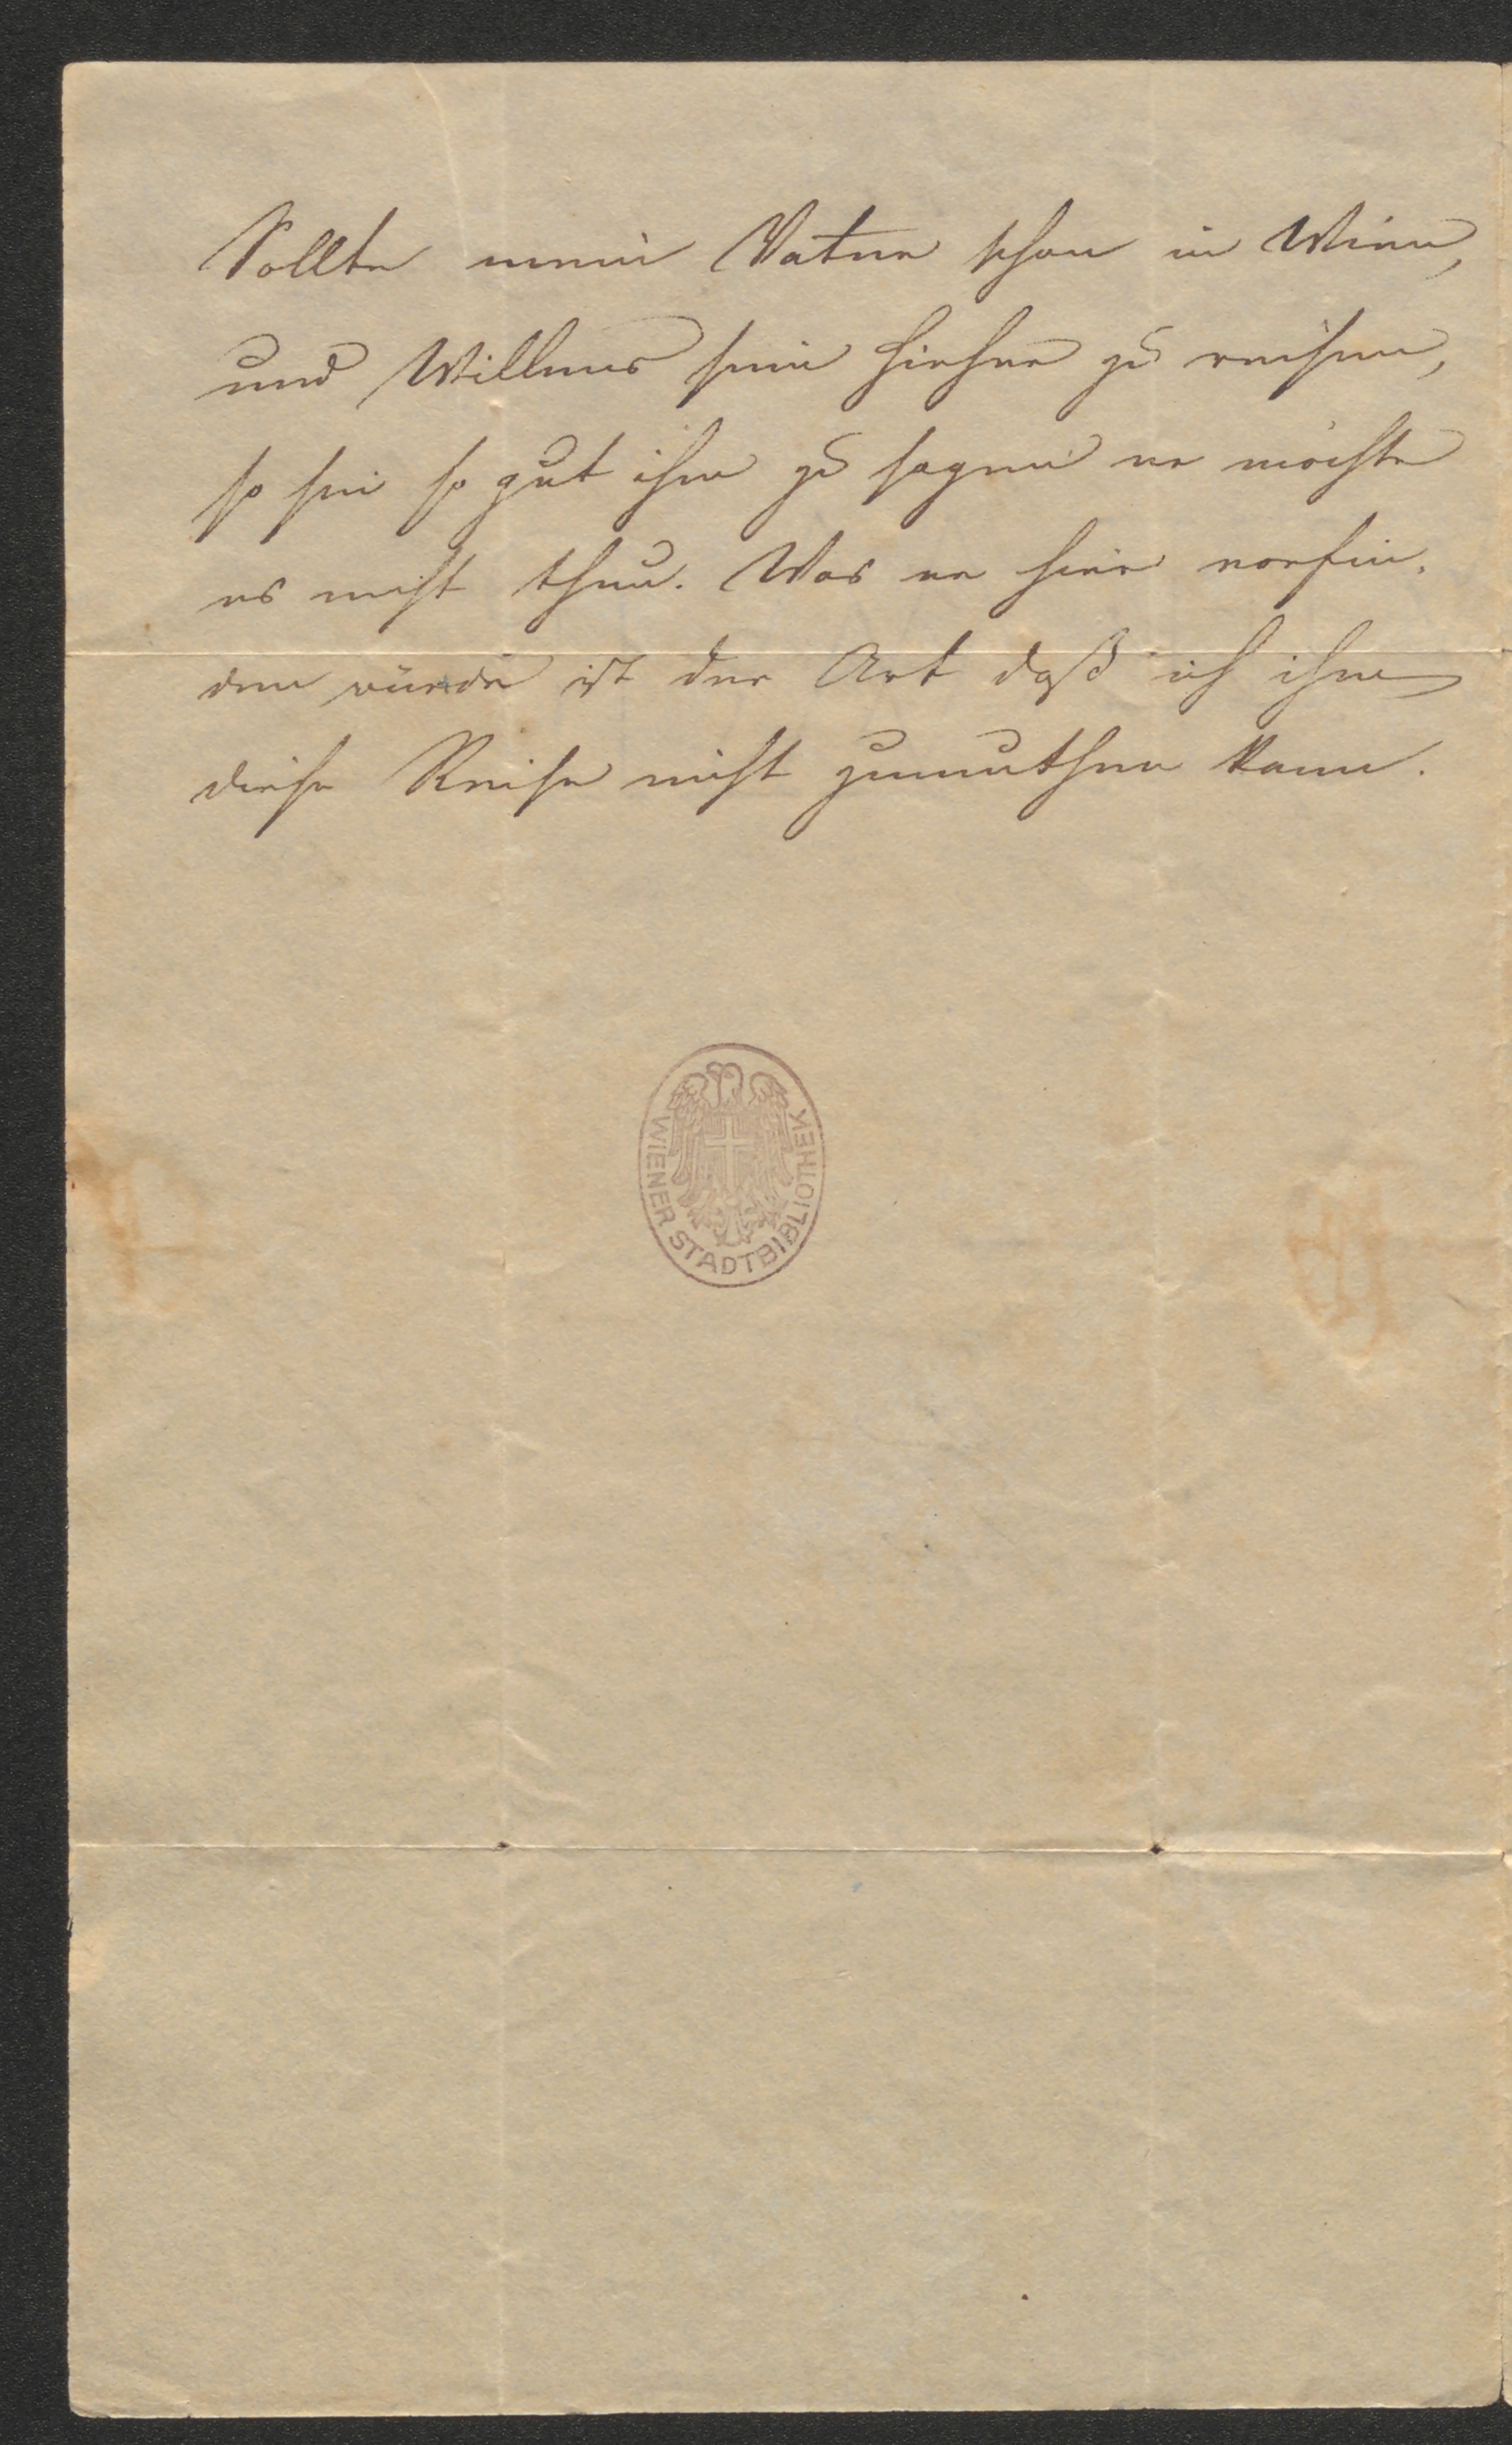 Sollte mein Vater schon in Wien,
und Willens sein hieher zu reisen,
so sei so gut ihm zu sagen er möchte
es nicht thun. Was er hier vorfin-
den würde ist der Art daß ich ihm
diese Reise nicht zumuthen kann.
WIENER STADTBIBLIOTHEK